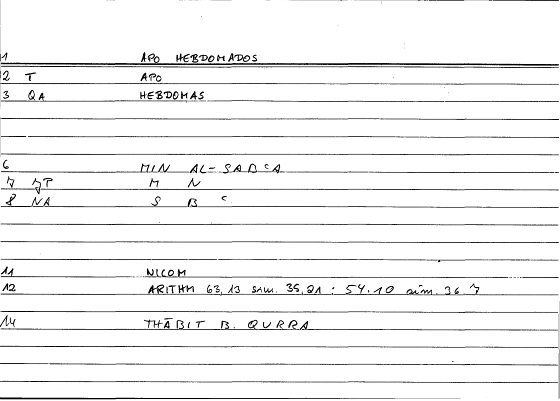 1 APO HEBDOMADOS
2 T APO
3 QA HEBDOMAS
6 MIN AL-SABʿA
7 JP M N
8 NA S B ʿ
11 NICOM
12 ARITHM 63,13 sim. 35,21 : 54.10 sim. 36.7
14 THĀBIT B. QURRA